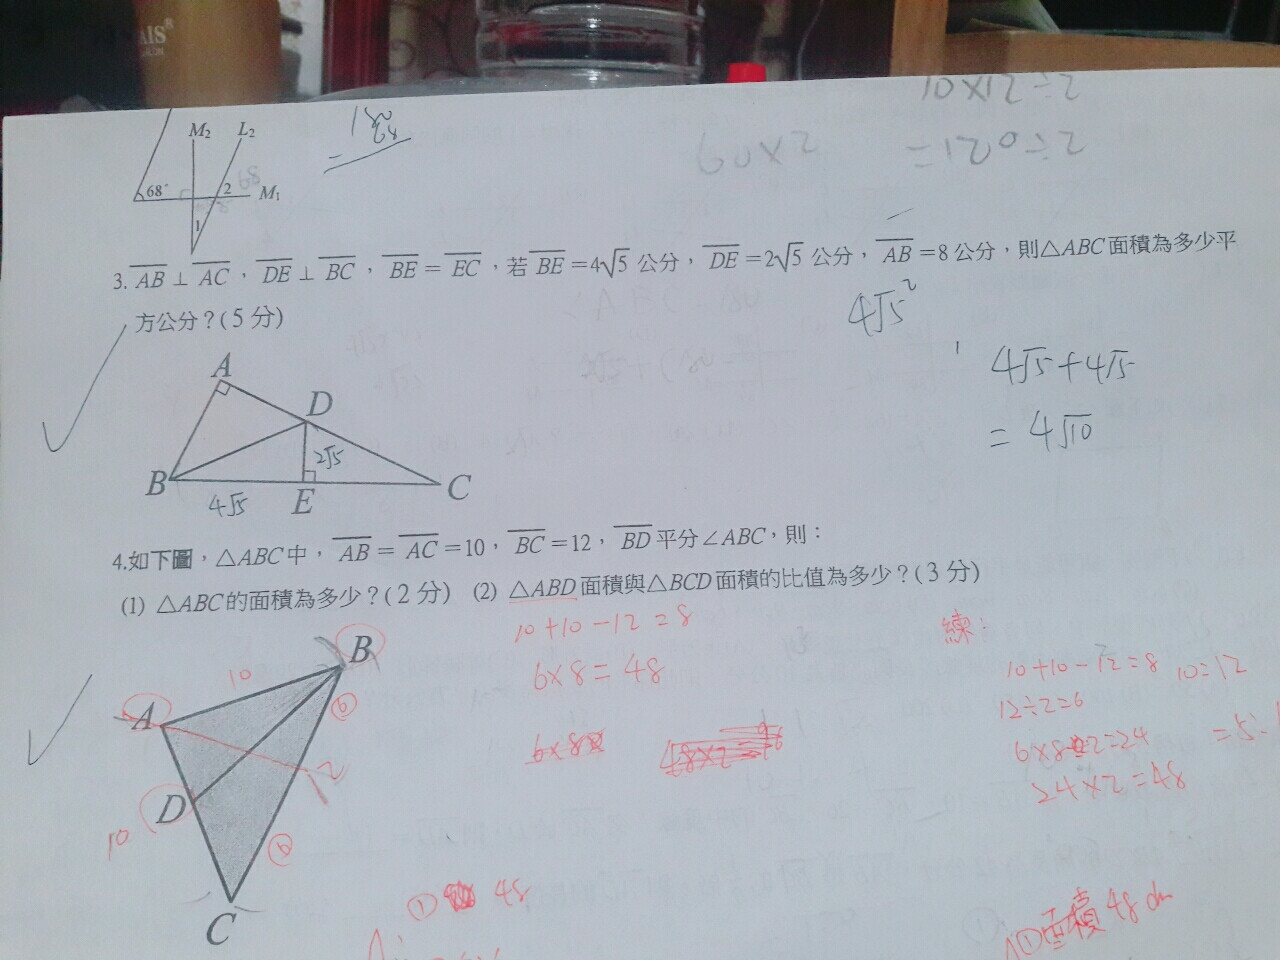 AIS®
10×12÷2
60×2
=120÷2
M₂
L₂
68
68°
2
M₁
1
3. AB⊥AC，DE⊥BC，BE＝EC，若BE＝4√5公分，DE＝2√5公分，AB＝8公分，則△ABC面積為多少平
方公分？(5分)
4√5²
4√5+4√5
=4√10
A
D
2√5
B
4√5
E
C
4.如下圖，△ABC中，AB＝AC＝10，BC＝12，BD平分∠ABC，則：
(1) △ABC的面積為多少？(2分) (2) △ABD面積與△BCD面積的比值為多少？(3分)
10+10-12=8
6×8=48
練：
10+10-12=8
10=12
12÷2=6
6×8÷2=24
24×2=48
B
10
6
A
D
10
6
C
① 48
①面積48